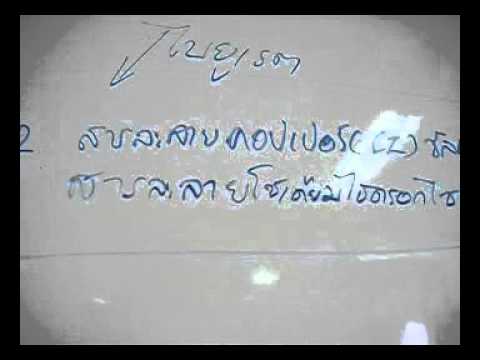 ไบยูเรต
2 สารละลายคอปเปอร์(II)ซัล
สารละลายโซเดียมไฮดรอกไซ